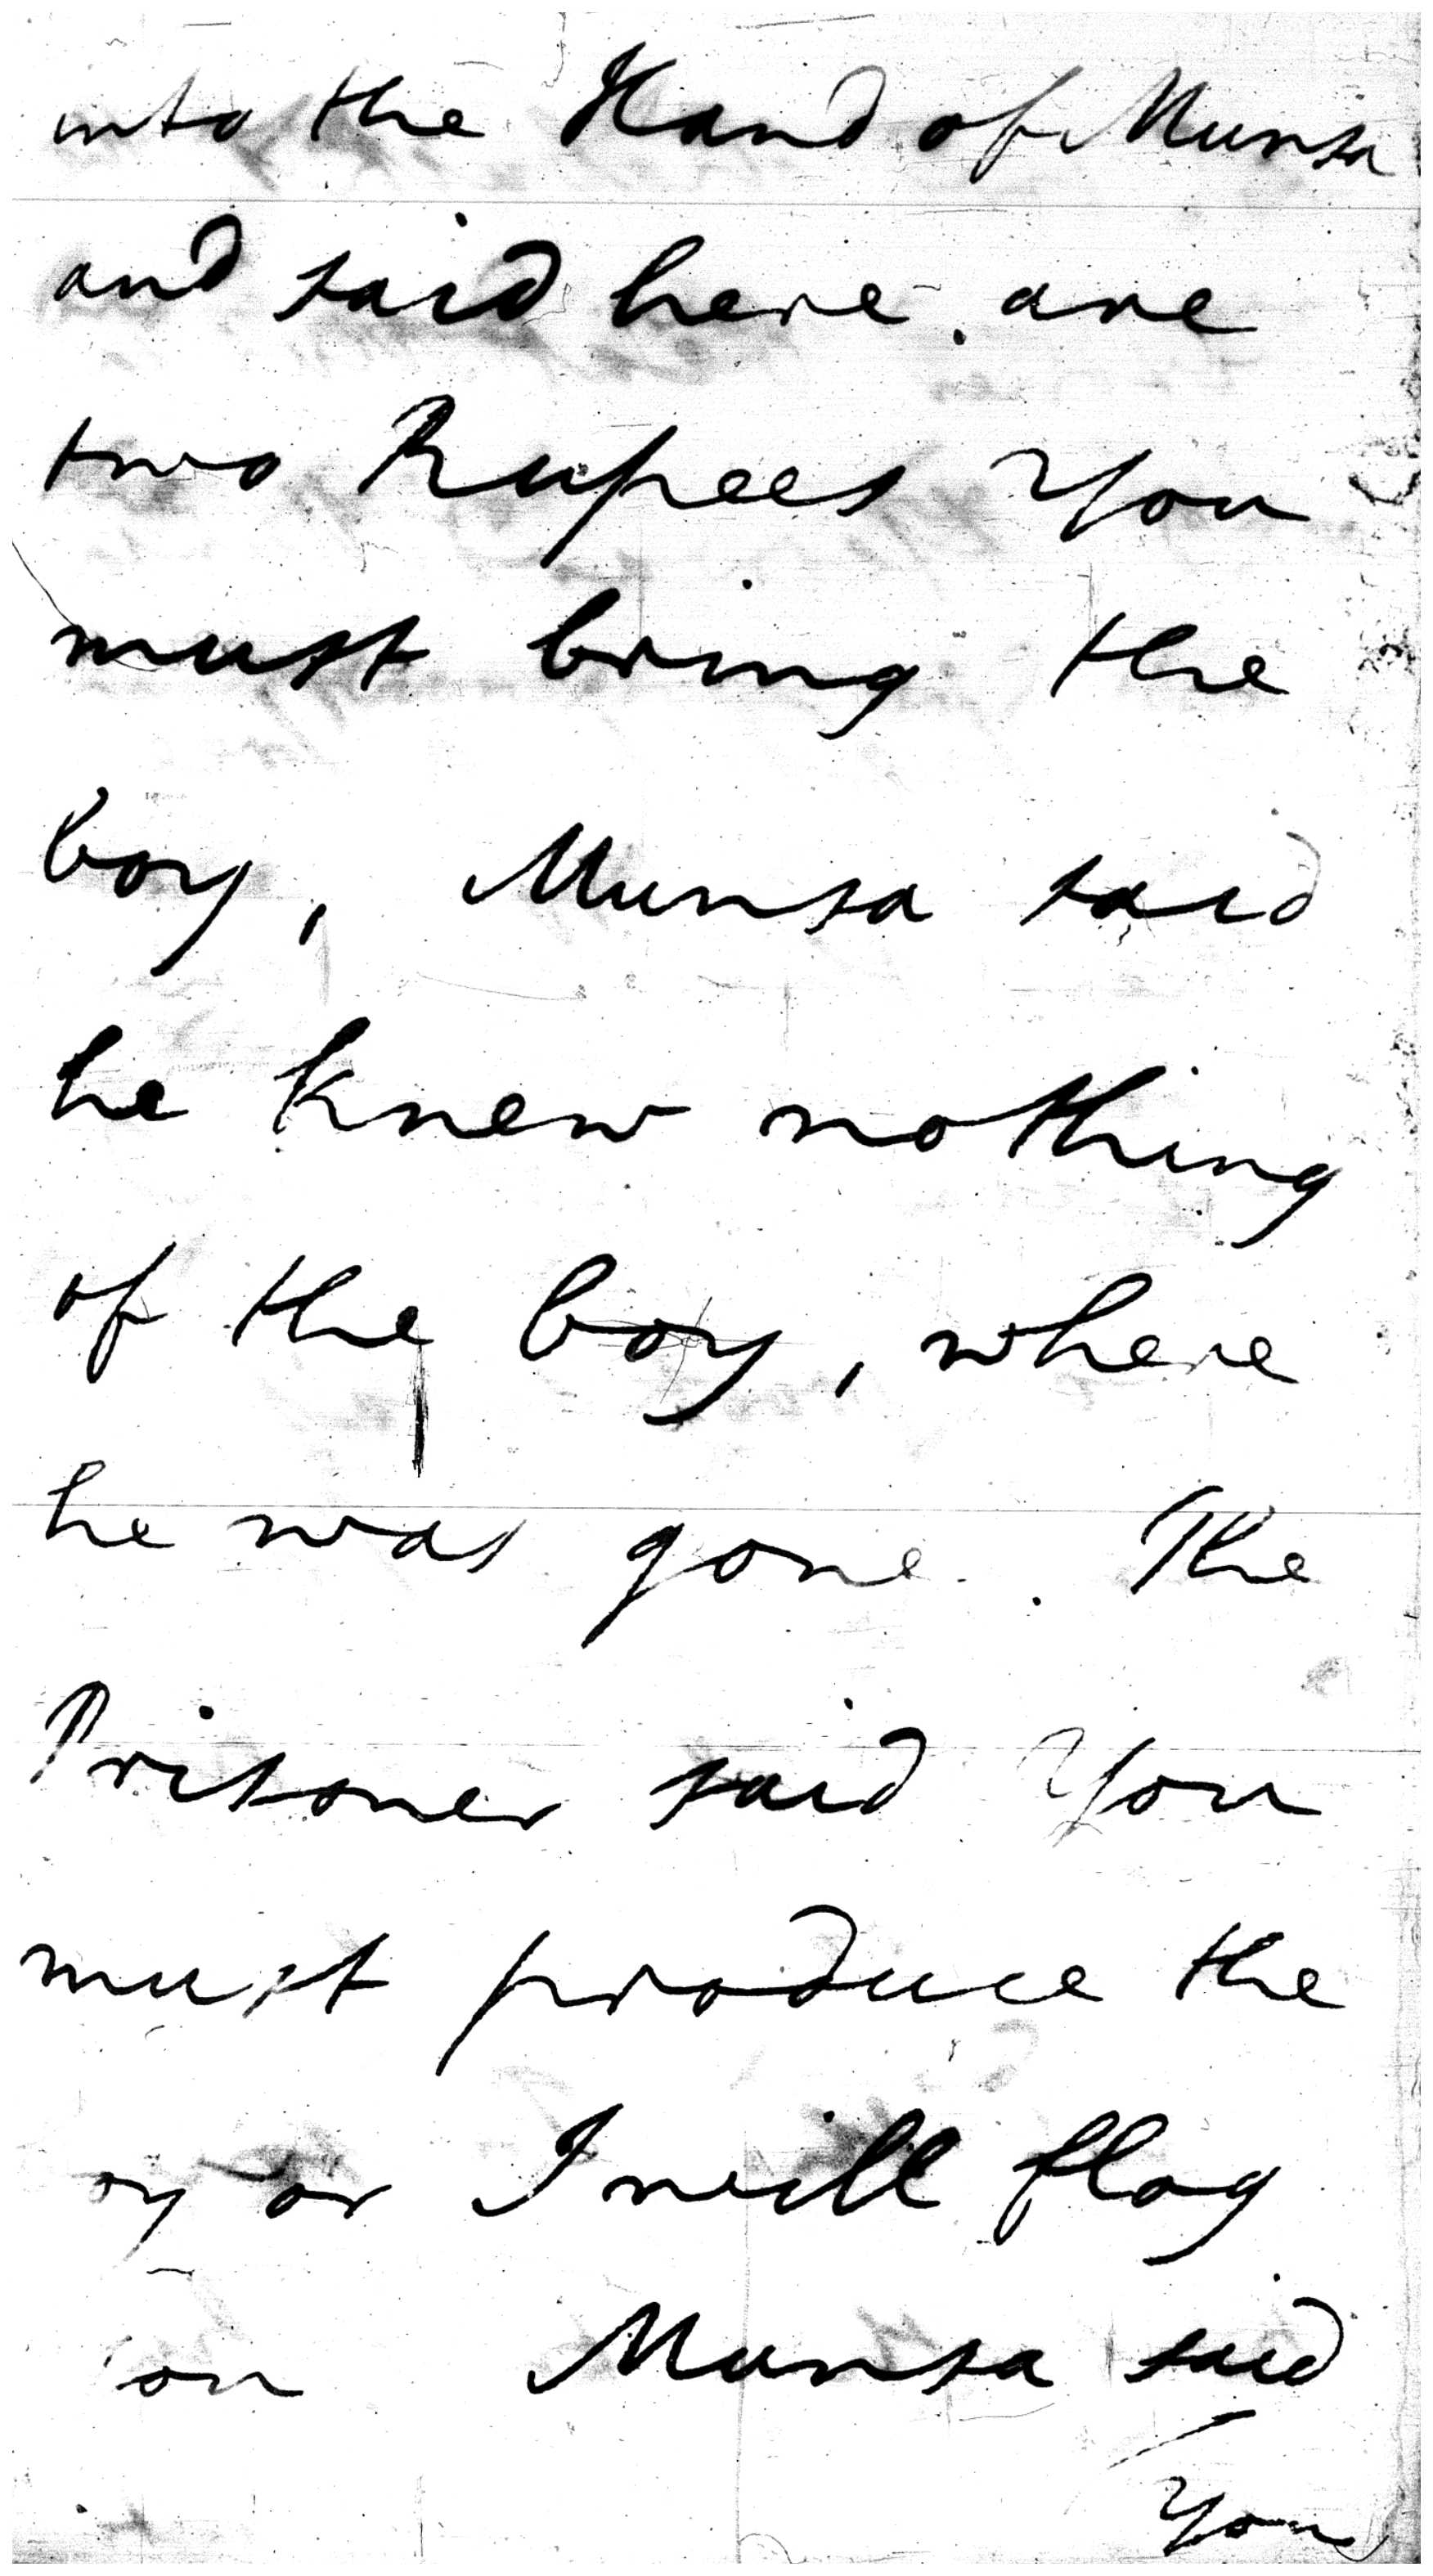 into the Hand of Munsa
and said here are
two Rupees You
must bring the
boy, Munsa said
he knew nothing
of the boy, where
he was gone. The
Prisoner said You
must produce the
oy or I will flog
ou Munsa said
You